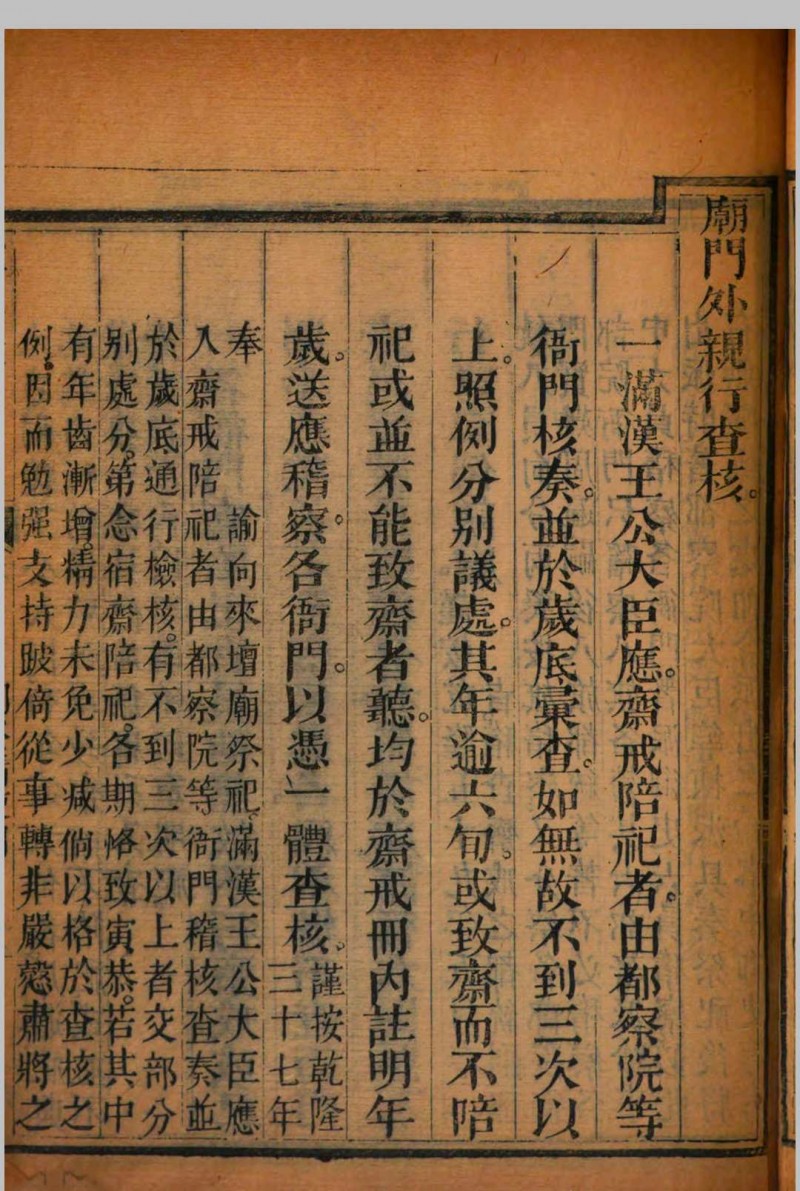 廟門外親行查核。
一滿漢王公大臣應。齋戒陪祀者。由都察院等
衙門核奏。並於歲底彙查。如無故不到三次以
上。照例分別議處。其年逾六旬。或致齋而不陪
祀或並不能致齋者聽。均於齋戒冊內註明年
歲。送應稽察。各衙門。以憑一體查核。
謹按乾隆
三十七年
奉
諭向來壇廟祭祀。滿漢王公大臣應
入齋戒陪祀者由都察院等衙門稽核查奏並
於歲底通行檢核。有不到三次以上者交部分
別處分。第念宿齋陪祀。各期恪致寅恭。若其中
有年齒漸增。精力未免少減倘以格於查核之
例。因而勉强支持跛倚從事轉非嚴慤肅將之